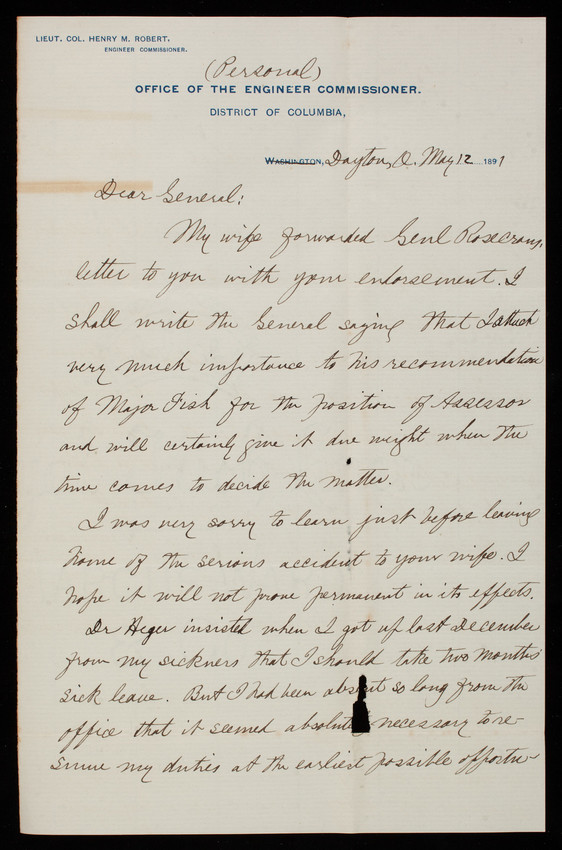 LIEUT. COL. HENRY M. ROBERT.
ENGINEER COMMISSIONER.
(Personal)
OFFICE OF THE ENGINEER COMMISSIONER.
DISTRICT OF COLUMBIA,
WASHINGTON, Dayton, O. May 12 1891
Dear General:
My wife forwarded Genl Rosecrans,
letter to you with your endorsement. I
shall write the General saying that I attach
very much importance to his recommendation
of Major Fish for the position of Assessor
and will certainly give it due weight when the
time comes to decide the matter.
I was very sorry to learn just before leaving
home of the serious accident to your wife. I
hope it will not prove permanent in its effects.
Dr Heger insisted when I got up last December
from my sickness that I should take two months'
sick leave. But I had been absent so long from the
office that it seemed absolutely necessary to re-
sume my duties at the earliest possible opportu-